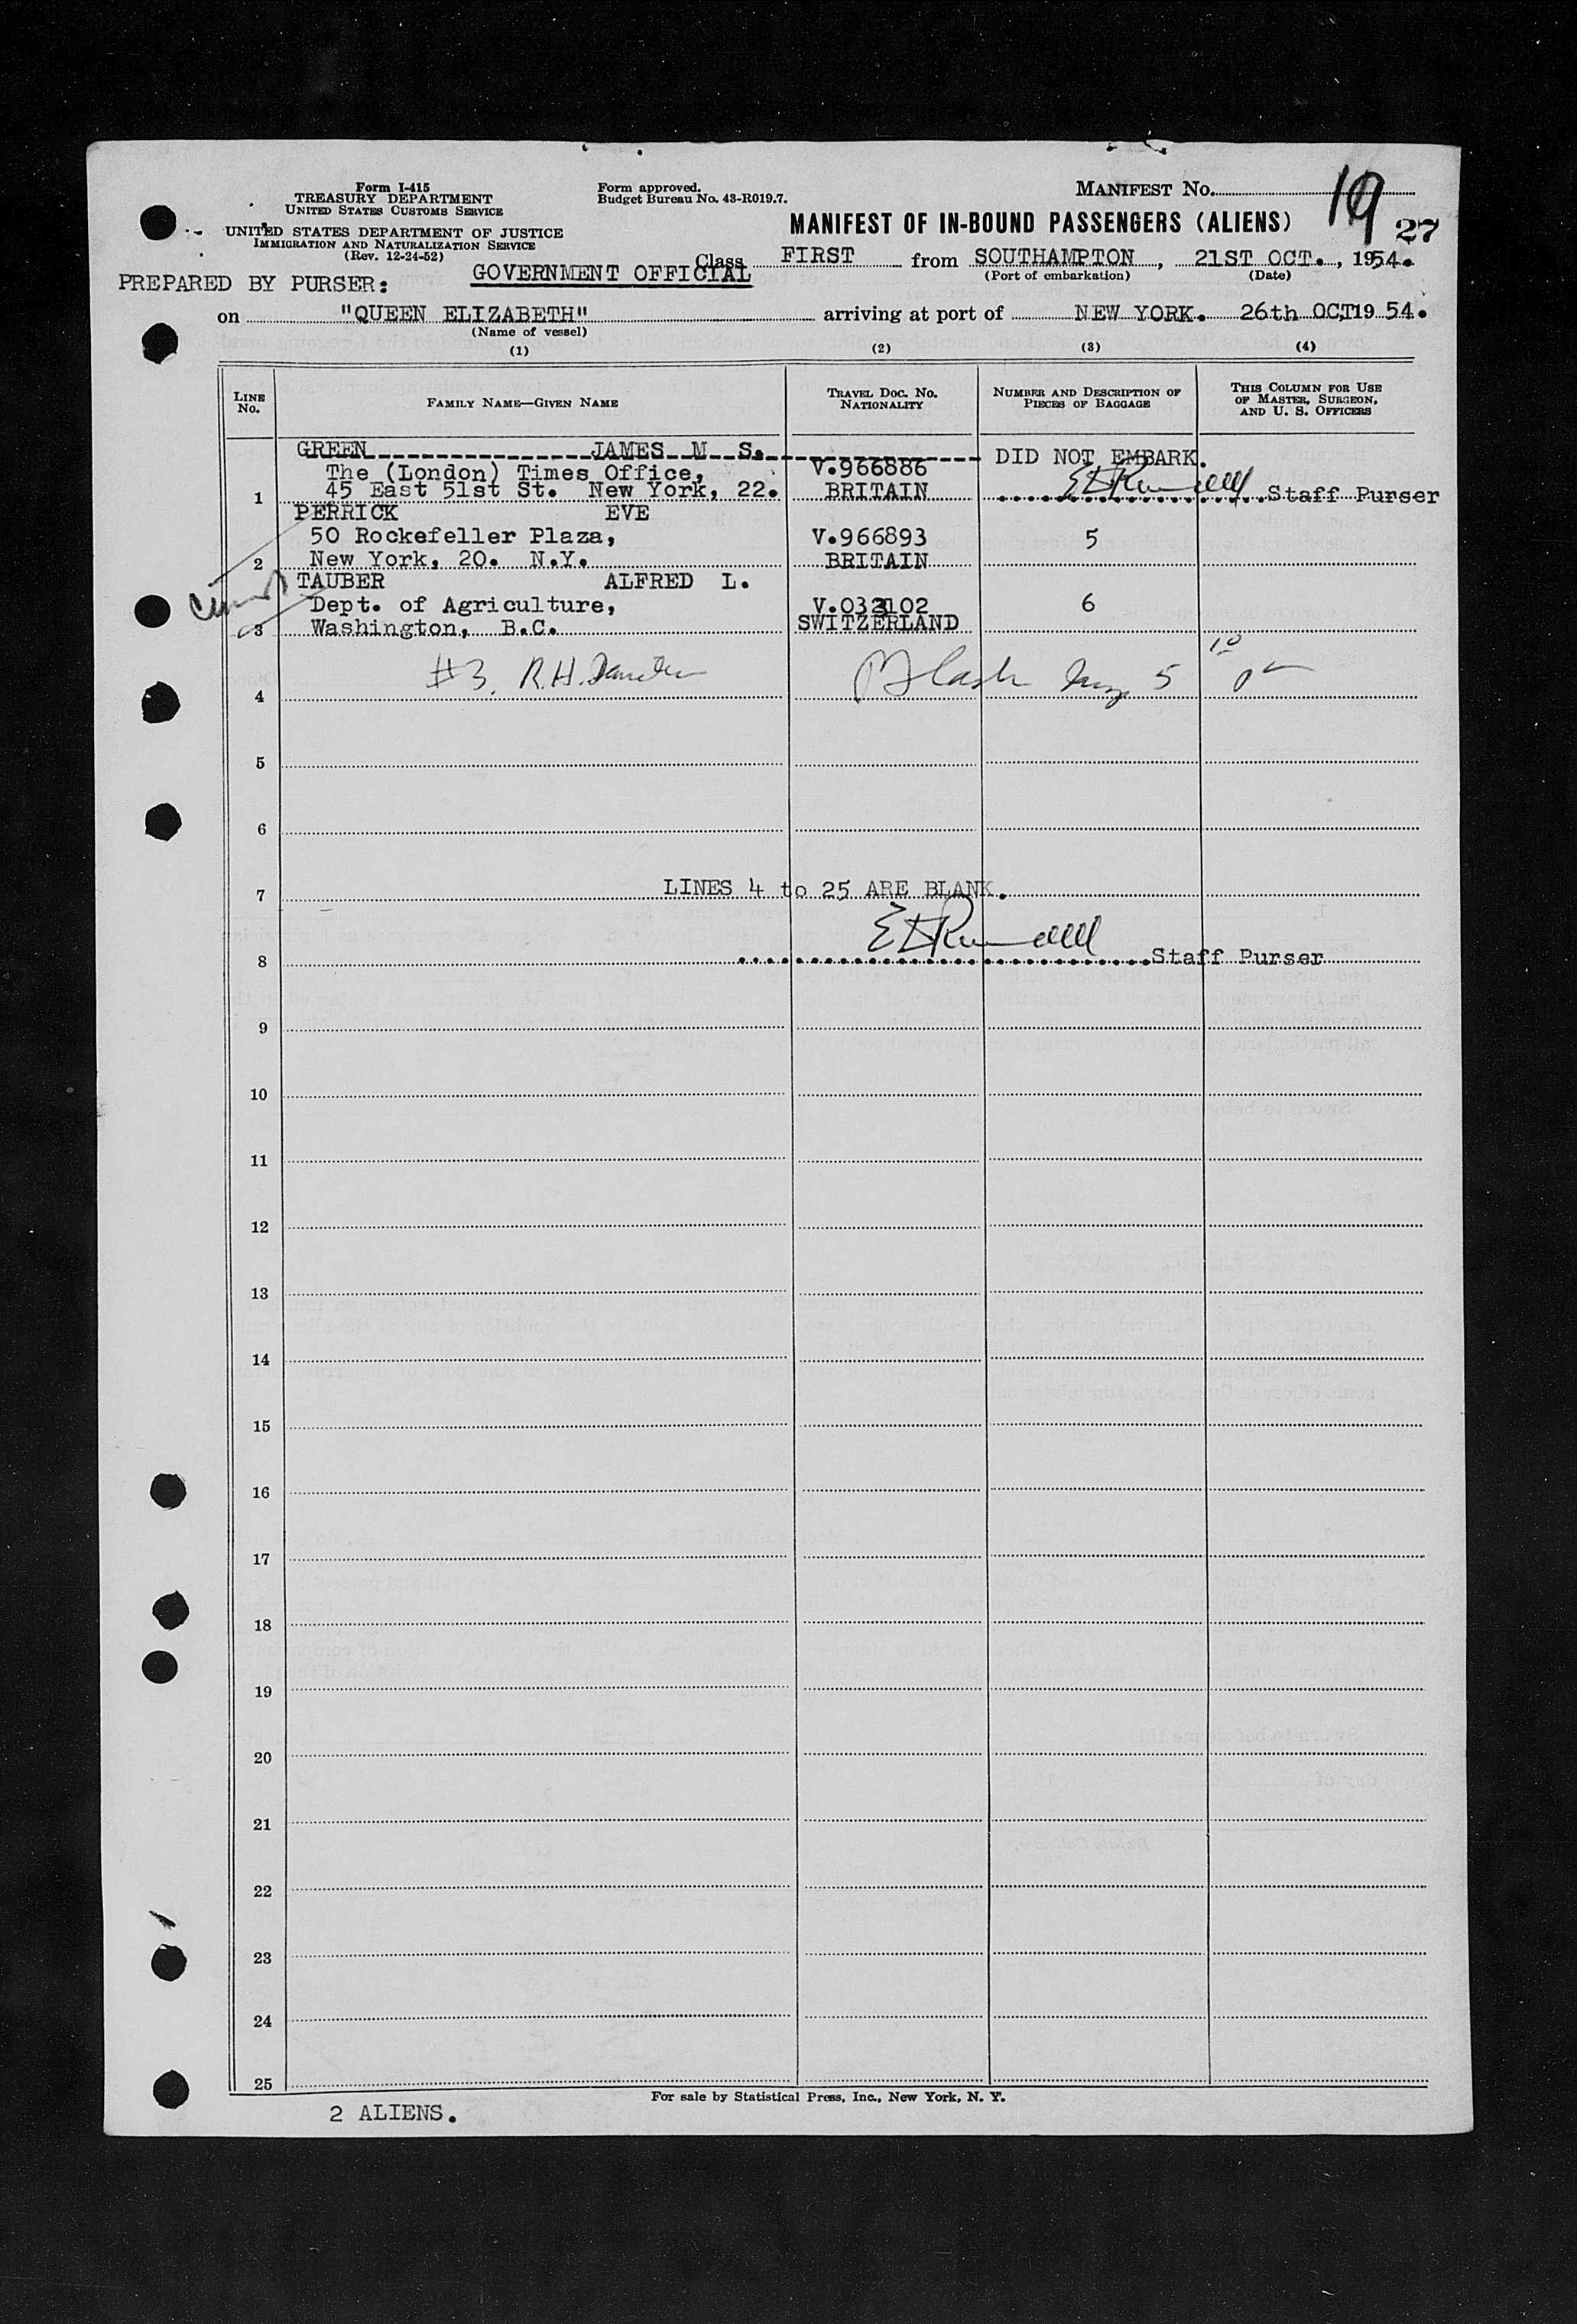 Form I-415
TREASURY DEPARTMENT
UNITED STATES CUSTOMS SERVICE
UNITED STATES DEPARTMENT OF JUSTICE
IMMIGRATION AND NATURALIZATION SERVICE
(Rev. 12-24-52)
Form approved.
Budget Bureau No. 43-R019.7.
MANIFEST No. 19
27
MANIFEST OF IN-BOUND PASSENGERS (ALIENS)
PREPARED BY PURSER: GOVERNMENT OFFICIAL Class FIRST from SOUTHAMPTON, 21ST OCT., 1954.
(Port of embarkation) (Date)
on "QUEEN ELIZABETH" arriving at port of NEW YORK. 26th OCT 19 54.
(Name of vessel)
(1) (2) (3) (4)
LINE No. FAMILY NAME—GIVEN NAME TRAVEL DOC. NO. NATIONALITY NUMBER AND DESCRIPTION OF PIECES OF BAGGAGE THIS COLUMN FOR USE OF MASTER, SURGEON, AND U. S. OFFICERS
GREEN JAMES M S. DID NOT EMBARK.
The (London) Times Office, V.966886
1 45 East 51st St. New York, 22. BRITAIN Staff Purser
PERRICK EVE
50 Rockefeller Plaza, V.966893 5
2 New York, 20. N.Y. BRITAIN
TAUBER ALFRED L.
Dept. of Agriculture, 6
3 Washington, B.C. SWITZERLAND
#3. R.H.
4 5
5
6
7 LINES 4 to 25 ARE BLANK.
8 Staff Purser
9
10
11
12
13
14
15
16
17
18
19
20
21
22
23
24
25
For sale by Statistical Press, Inc., New York, N. Y.
2 ALIENS.